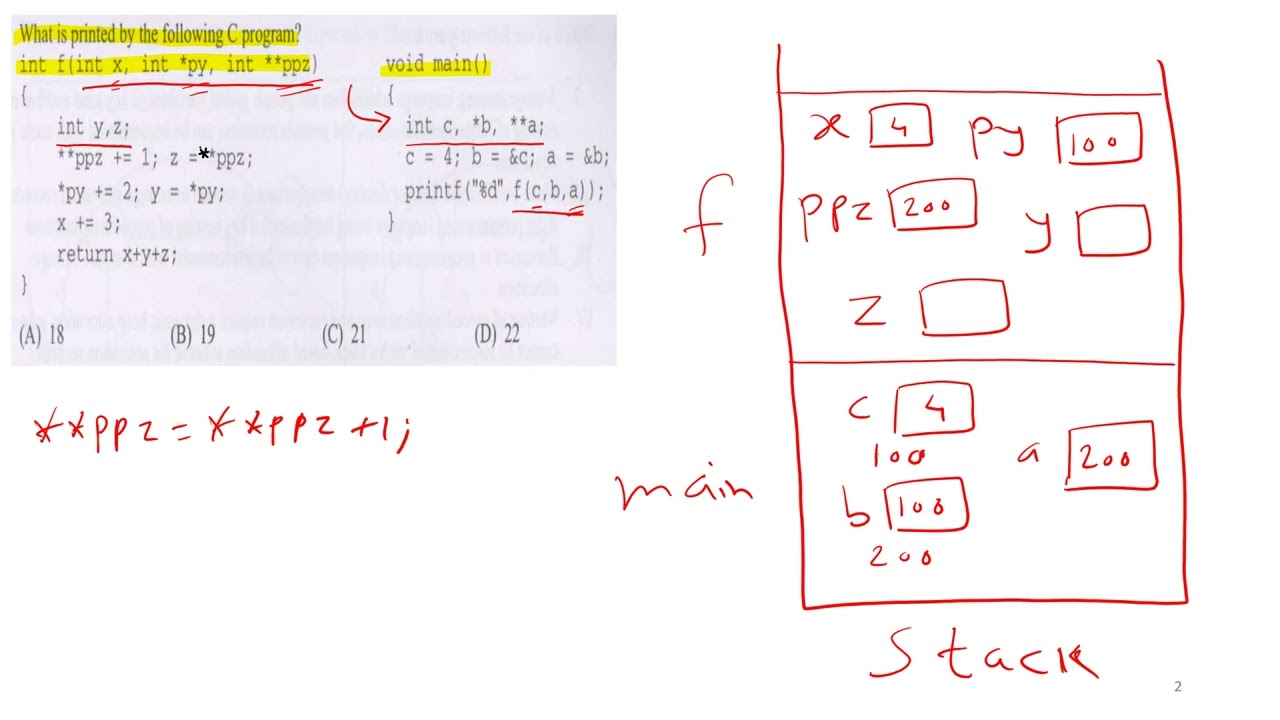 What is printed by the following C program?
int f(int x, int *py, int **ppz)
{
int y,z;
**ppz += 1; z =**ppz;
*py += 2; y = *py;
x += 3;
return x+y+z;
}
void main()
{
int c, *b, **a;
c = 4; b = &c; a = &b;
printf("%d",f(c,b,a));
}
(A) 18 (B) 19 (C) 21 (D) 22
**ppz = **ppz +1;
f
x 4 py 100
ppz 200 y
z
main
c 4
100 a 200
b 100
200
Stack
2